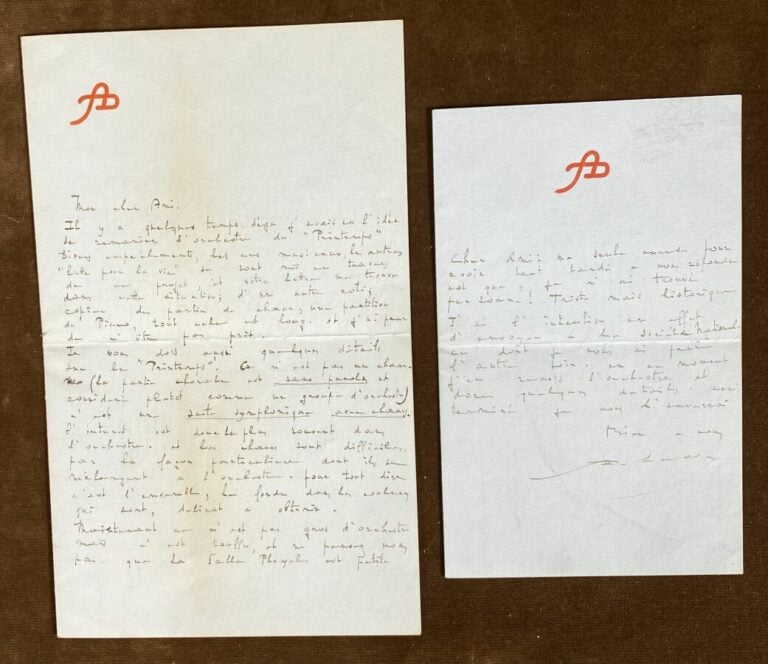 Mon cher Ami.
Il y a quelques temps déja j'avais eu l'idée
de remanier l'orchestre du "Printemps"
Divers empêchements, les uns musicaux, les autres
"lutte pour la vie" se sont mis en travers
de ce projet, et votre lettre me trouve
dans cette situation; d'un autre coté;
copie de parties de chœurs, une partition
de Piano, tout cela est long. et j'ai peur
de n'être pas prêt.
Je vous dois aussi quelques détails
sur le "Printemps" Ce n'est pas un chœur
(la partie chorale est sans paroles et
considéré plutôt comme un groupe d'orchestre)
c'est une suite symphonique avec chœurs.
l'intérêt est donc le plus souvent dans
l'orchestre. et les chœurs sont difficiles.
par la façon particulière dont ils se
mélangent à l'orchestre. pour tout dire
c'est l'ensemble, la fonte dans les couleurs
qui sont, délicat à obtenir.
Maintenant ce n'est pas gros d'orchestre
mais c'est touffu, et ne pensez vous
pas. que la Salle Pleyel est petite
FA
Cher Ami: ma seule excuse pour
avoir tant tardé à vous répondre
est que, je n'ai trouvé
personne! Triste mais historique
J'ai l'intention en effet
d'envoyer à la Société Nationale
ce dont je vous ai parlé
l'autre fois. en ce moment
j'en revois l'orchestre et
divers quelques détails. ceci
terminé je vous l'enverrai
Bien à vous